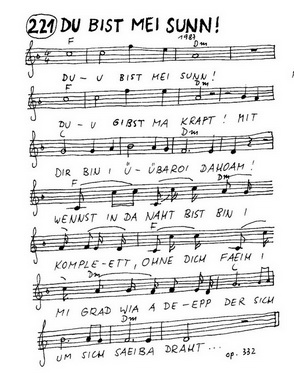 221 DU BIST MEI SUNN!
F 1987 Dm
DU-U BIST MEI SUNN!
F Dm
DU-U GIBST MA KRAFT! MIT
C Dm
DIR BIN I Ü-ÜBAROI DAHOAM!
F
WENNST IN DA NAHT BIST BIN I
F
KOMPLE-ETT, OHNE DICH FAEHI I
Dm C
MI GRAD WIA A DE-EPP DER SICH
Dm
UM SICH SAEIBA DRAHT...
op. 332